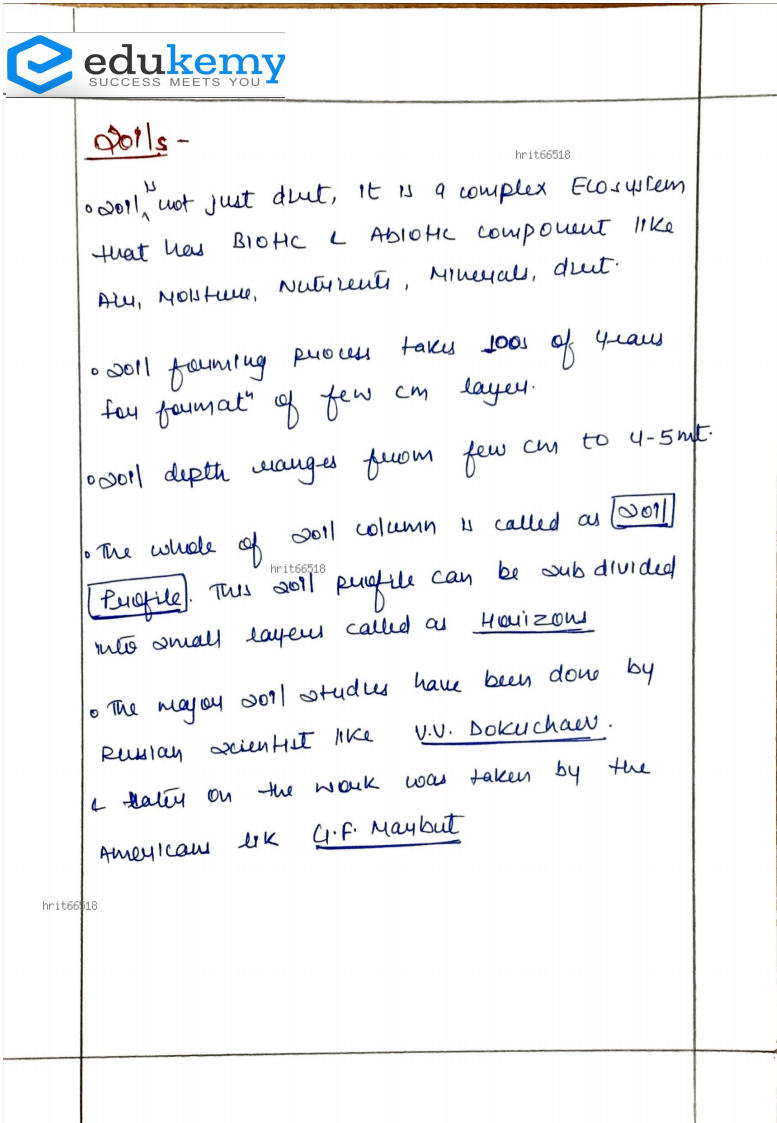 edukemy
SUCCESS MEETS YOU
Soils -
hrit66518
• Soil is not just dirt, it is a complex Ecosystem
that has Biotic & Abiotic component like
Air, Moisture, Nutrients, Minerals, dirt.
• Soil forming process takes 100s of years
for formatⁿ of few cm layer.
• Soil depth ranges from few cm to 4-5 mt.
• The whole of soil column is called as Soil
hrit66518
Profile. This soil profile can be sub divided
into small layers called as Horizons
• The major soil studies have been done by
Russian scientist like V.V. Dokuchaev.
& later on the work was taken by the
Americans lik G.F. Maybut
hrit66518